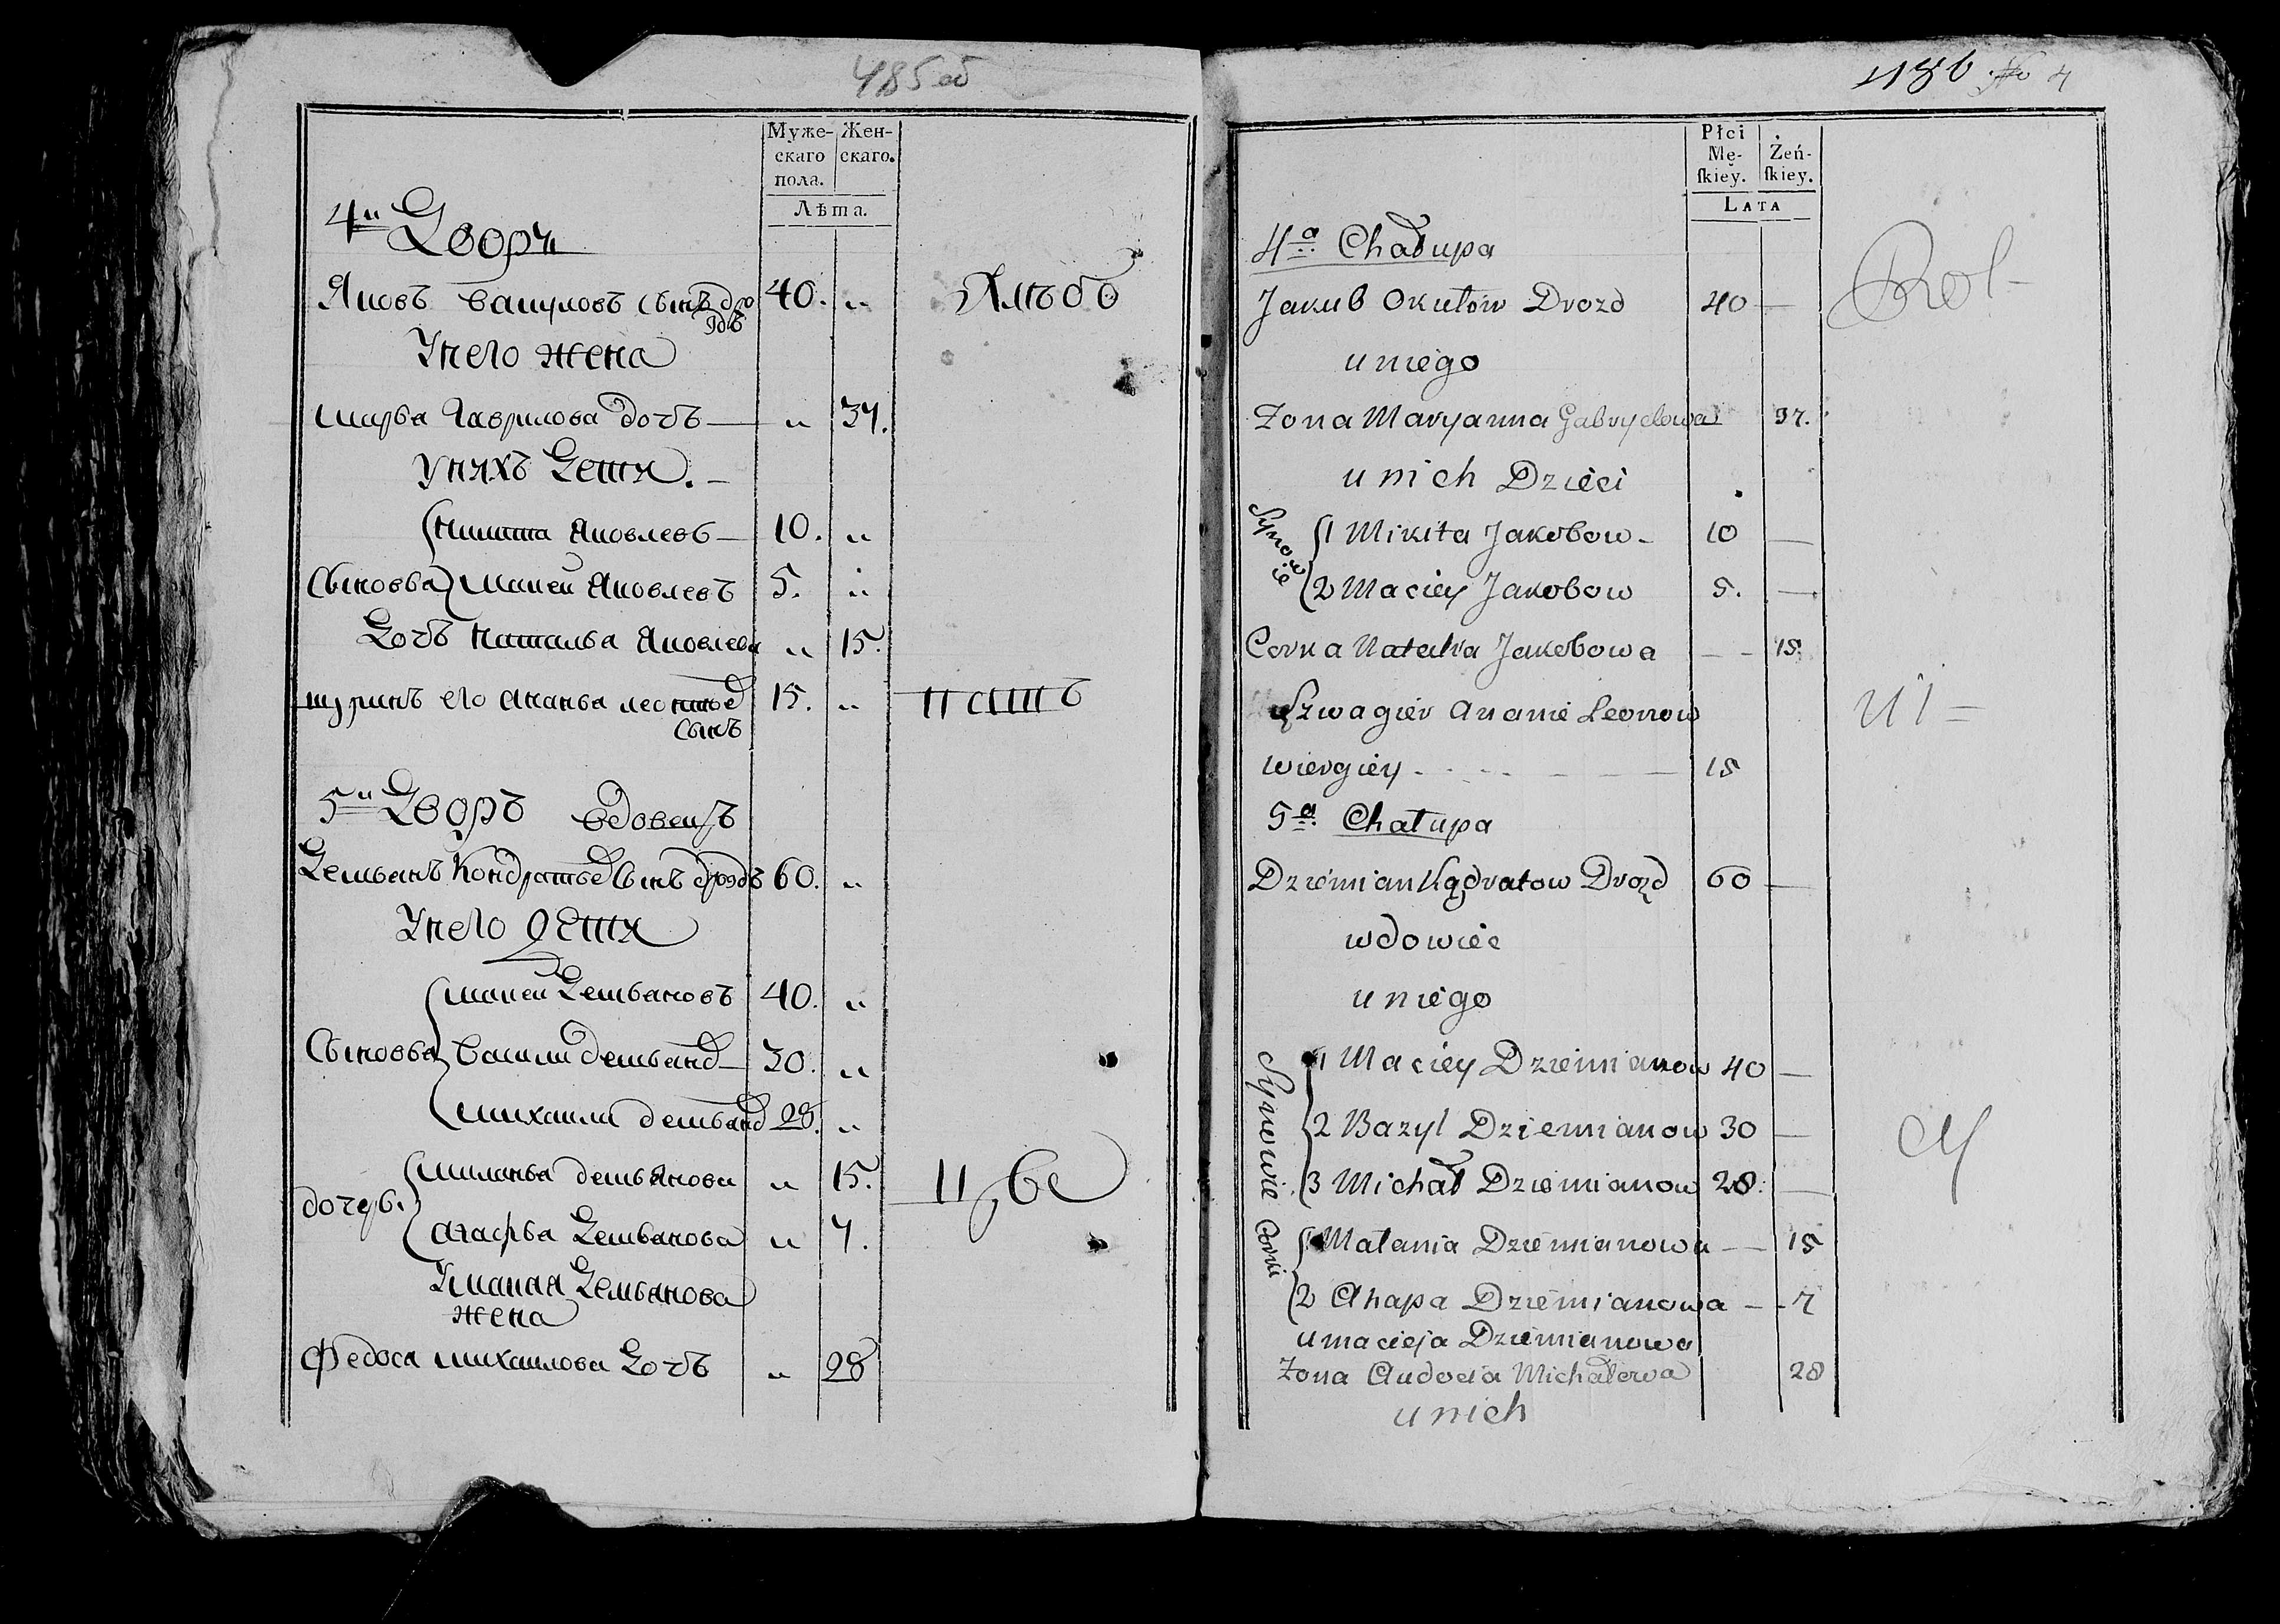 485 об
Муже-
скаго
пола.
Жен-
скаго.
Лѣта.
4й Дворъ
Яковъ сынъ дро
здъ 40. „
Унего жена
Марья Гаврилова дочь — „ 37.
унихъ Дети. –
Никита Яковлевъ — 10. „
Сыновья Матей Яковлевъ 5. „
Дочь Наталья Яковлева „ 15.
шуринъ его Ананья Леонов
сынъ 15. „
5й Дворъ вдовецъ
Демьянъ Кондратьев сынъ дроздъ 60. „
Унего дети
Матей Демьяновъ 40. „
Сыновья Васили демьянов — 30. „
Михаили демьянов 28. „
миланья демьянова „ 15.
дочерь.
Агафья Демьянова „ 7.
Уматея Демьянова
жена
Федося михаилова Дочь „ 28
486 No 4
Płci
Mę-
ſkiey.
Żeń-
ſkiey.
LATA
4a Chałupa
Jakub Okułow Drozd 40 —
u niego
Zona Maryanna Gabryelowa 37.
u nich Dzieci
Synowie
1 Mikita Jakobow – 10 —
2 Maciey Jakobow 5. —
Corka Natalia Jakobowa — – 15.
Szwagier Ananie Leonow
wiergiey - - - - — — — 15
5a Chałupa
Dziemian Kądratow Drozd 60 —
wdowiec
u niego
Synowie
1 Maciey Dziemianow 40 —
2 Bazyl Dziemianow 30 —
3 Michał Dziemianow 28. —
Corki
1 Małania Dziemianowa — — 15
2 Ahapa Dziemianowa – - 7
u macieja Dziemianowa
Zona Audocia Michałowa 28
u nich